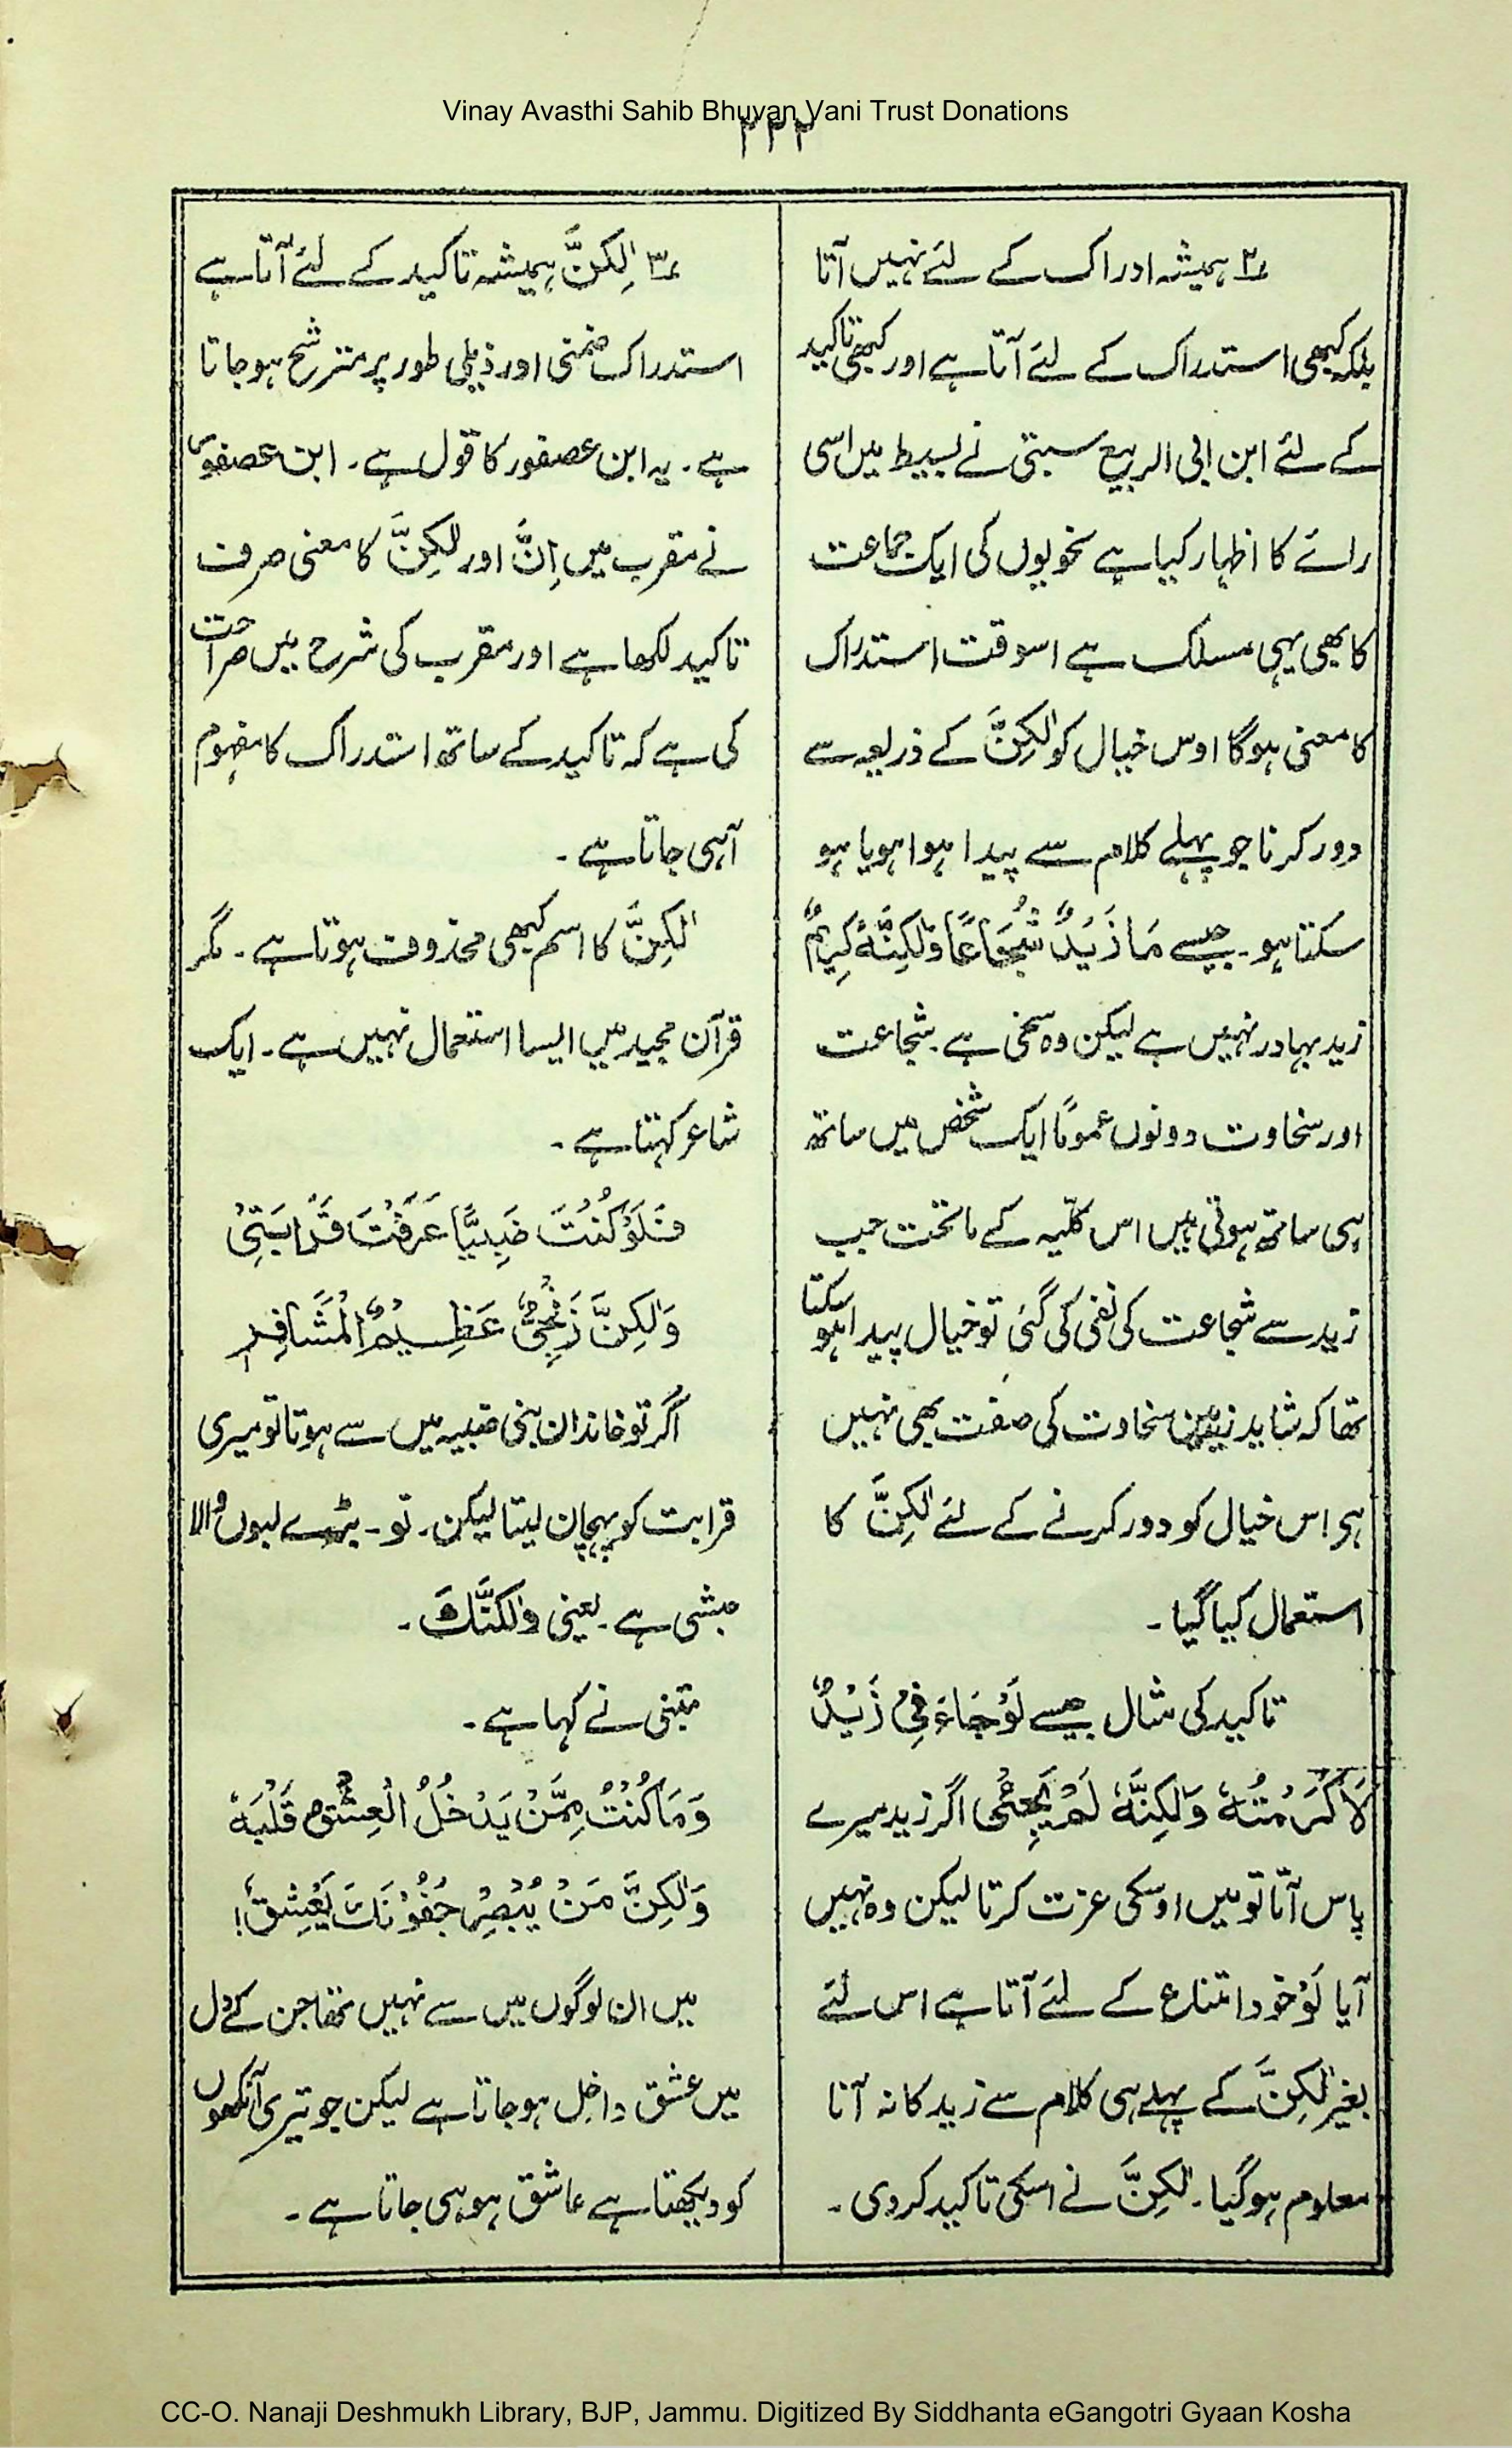 Vinay Avasthi Sahib Bhuvan Vani Trust Donations
۲۳۳
۲؎ ہمیشہ ادراک کے لئے نہیں آتا
بلکہ کبھی استدراک کے لئے آتا ہے اور کبھی تاکید
کے لئے ابن ابی الربیع سبتی نے بسیط میں اسی
رائے کا اظہار کیا ہے نحویوں کی ایک جماعت
کا بھی یہی مسلک ہے اسوقت استدراک
کا معنی ہوگا اوس خیال کو لٰکِنَّ کے ذریعہ سے
دور کرنا جو پہلے کلام سے پیدا ہوا ہو یا ہو
سکتا ہو۔ جیسے مَا زَیْدٌ شُجَاعًا وَلٰکِنَّہٗ کَرِیْمٌ
زید بہادر نہیں ہے لیکن وہ سخی ہے۔ شجاعت
اور سخاوت دونوں عموماً ایک شخص میں ساتھ
ہی ساتھ ہوتی ہیں اس کلّیہ کے ماتحت جب
زید سے شجاعت کی نفی کی گئی تو خیال پیدا ہو سکتا
تھا کہ شاید زید میں سخاوت کی صفت بھی نہیں
ہر اس خیال کو دور کرنے کے لئے لٰکِنَّ کا
استعمال کیا گیا۔
تاکید کی مثال جیسے لَوْ جَاءَ فِیْ زَیْدٌ
لَاَکْرَمْتُہٗ وَلٰکِنَّہٗ لَمْ یَجِئْی اگر زید میرے
پاس آتا تو میں اوسکی عزت کرتا لیکن وہ نہیں
آیا لَوْ خود امتناع کے لئے آتا ہے اس لئے
بغیر لٰکِنَّ کے پہلے ہی کلام سے زید کا نہ آنا
معلوم ہوگیا۔ لٰکِنَّ نے اسکی تاکید کردی۔
۳؎ لٰکِنَّ ہمیشہ تاکید کے لئے آتا ہے
استدراک ضمنی اور ذیلی طور پر مترشح ہو جاتا
ہے۔ یہ ابن عصفور کا قول ہے۔ ابن عصفور
نے مقرب میں اِنَّ اور لٰکِنَّ کا معنی صرف
تاکید لکھا ہے اور مقرب کی شرح میں صراحت
کی ہے کہ تاکید کے ساتھ استدراک کا مفہوم
آہی جاتا ہے۔
لٰکِنَّ کا اسم کبھی محذوف ہوتا ہے۔ مگر
قرآن مجید میں ایسا استعمال نہیں ہے۔ ایک
شاعر کہتا ہے۔
فَلَوْ کُنْتَ ضَبِیًّا عَرَفْتَ قَرَابَتِیْ
وَلٰکِنَّ زَنْجِیٌّ عَظِیْمُ الْمَشَافِرِ
اگر تو خاندان بنی ضبیہ میں سے ہوتا تو میری
قرابت کو پہچان لیتا لیکن۔ تو۔ بڑے لبوں والا
حبشی ہے۔ یعنی وَلٰکِنَّکَ۔
متبنی نے کہا ہے۔
وَمَا کُنْتُ مِمَّنْ یَدْخُلُ الْعِشْقُ قَلْبَہٗ
وَلٰکِنَّ مَنْ یُبْصِرْ جُفُوْنَکَ یَعْشِقُ!
میں ان لوگوں میں سے نہیں تھا جن کے دل
میں عشق داخل ہو جاتا ہے لیکن جو تیری آنکھوں
کو دیکھتا ہے عاشق ہو ہی جاتا ہے۔
CC-O. Nanaji Deshmukh Library, BJP, Jammu. Digitized By Siddhanta eGangotri Gyaan Kosha